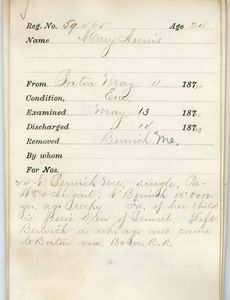 Reg. No. 59,465 Age 24
Name Mary Annis
From Boston May 11 187
Condition, Enc.
Examined May 13 187
Discharged 14 187
Removed Berwick Me.
By whom
For Nos.
24 b. Berwick Me. single. Pa.
Wm & Abigail, b. Berwick d.
yrs. ago Pa. of her child
is Jesse Drew of Berwick Left
Berwick a wk. ago and came
to Boston via Bo. Me. R. R.